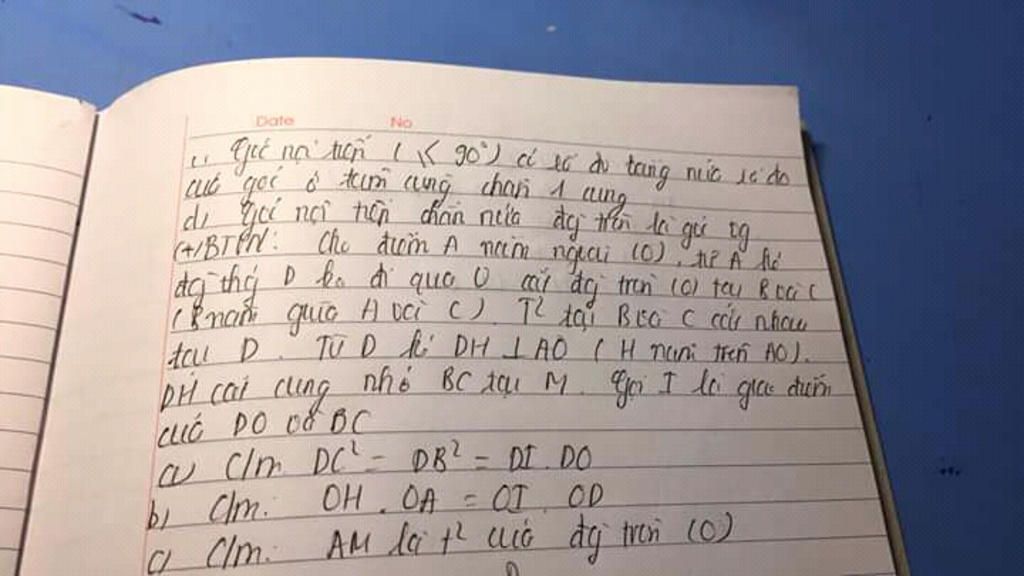 Date No
c, Góc nội tiếp (≤ 90°) có số đo bằng nửa số đo
của góc ở tâm cùng chắn 1 cung
d, Góc nội tiếp chắn nửa đg tròn là góc vg
(+) BTVN: Cho điểm A nằm ngoài (O), từ A kẻ
đg thg D ko đi qua O cắt đg tròn (O) tại B và C
(B nằm giữa A và C). T² tại B và C cắt nhau
tại D. Từ D kẻ DH ⊥ AO (H nằm trên AO).
DH cắt cung nhỏ BC tại M. Gọi I là giao điểm
của DO và BC
a) C/m DC² = DB² = DI. DO
b) C/m: OH. OA = OI. OD
c) C/m: AM là t² của đg tròn (O)